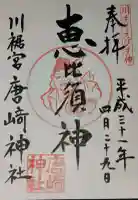 奉拝
平成三十一年
四月二十九日
恵比須神
川裾宮唐崎神社
唐崎神社